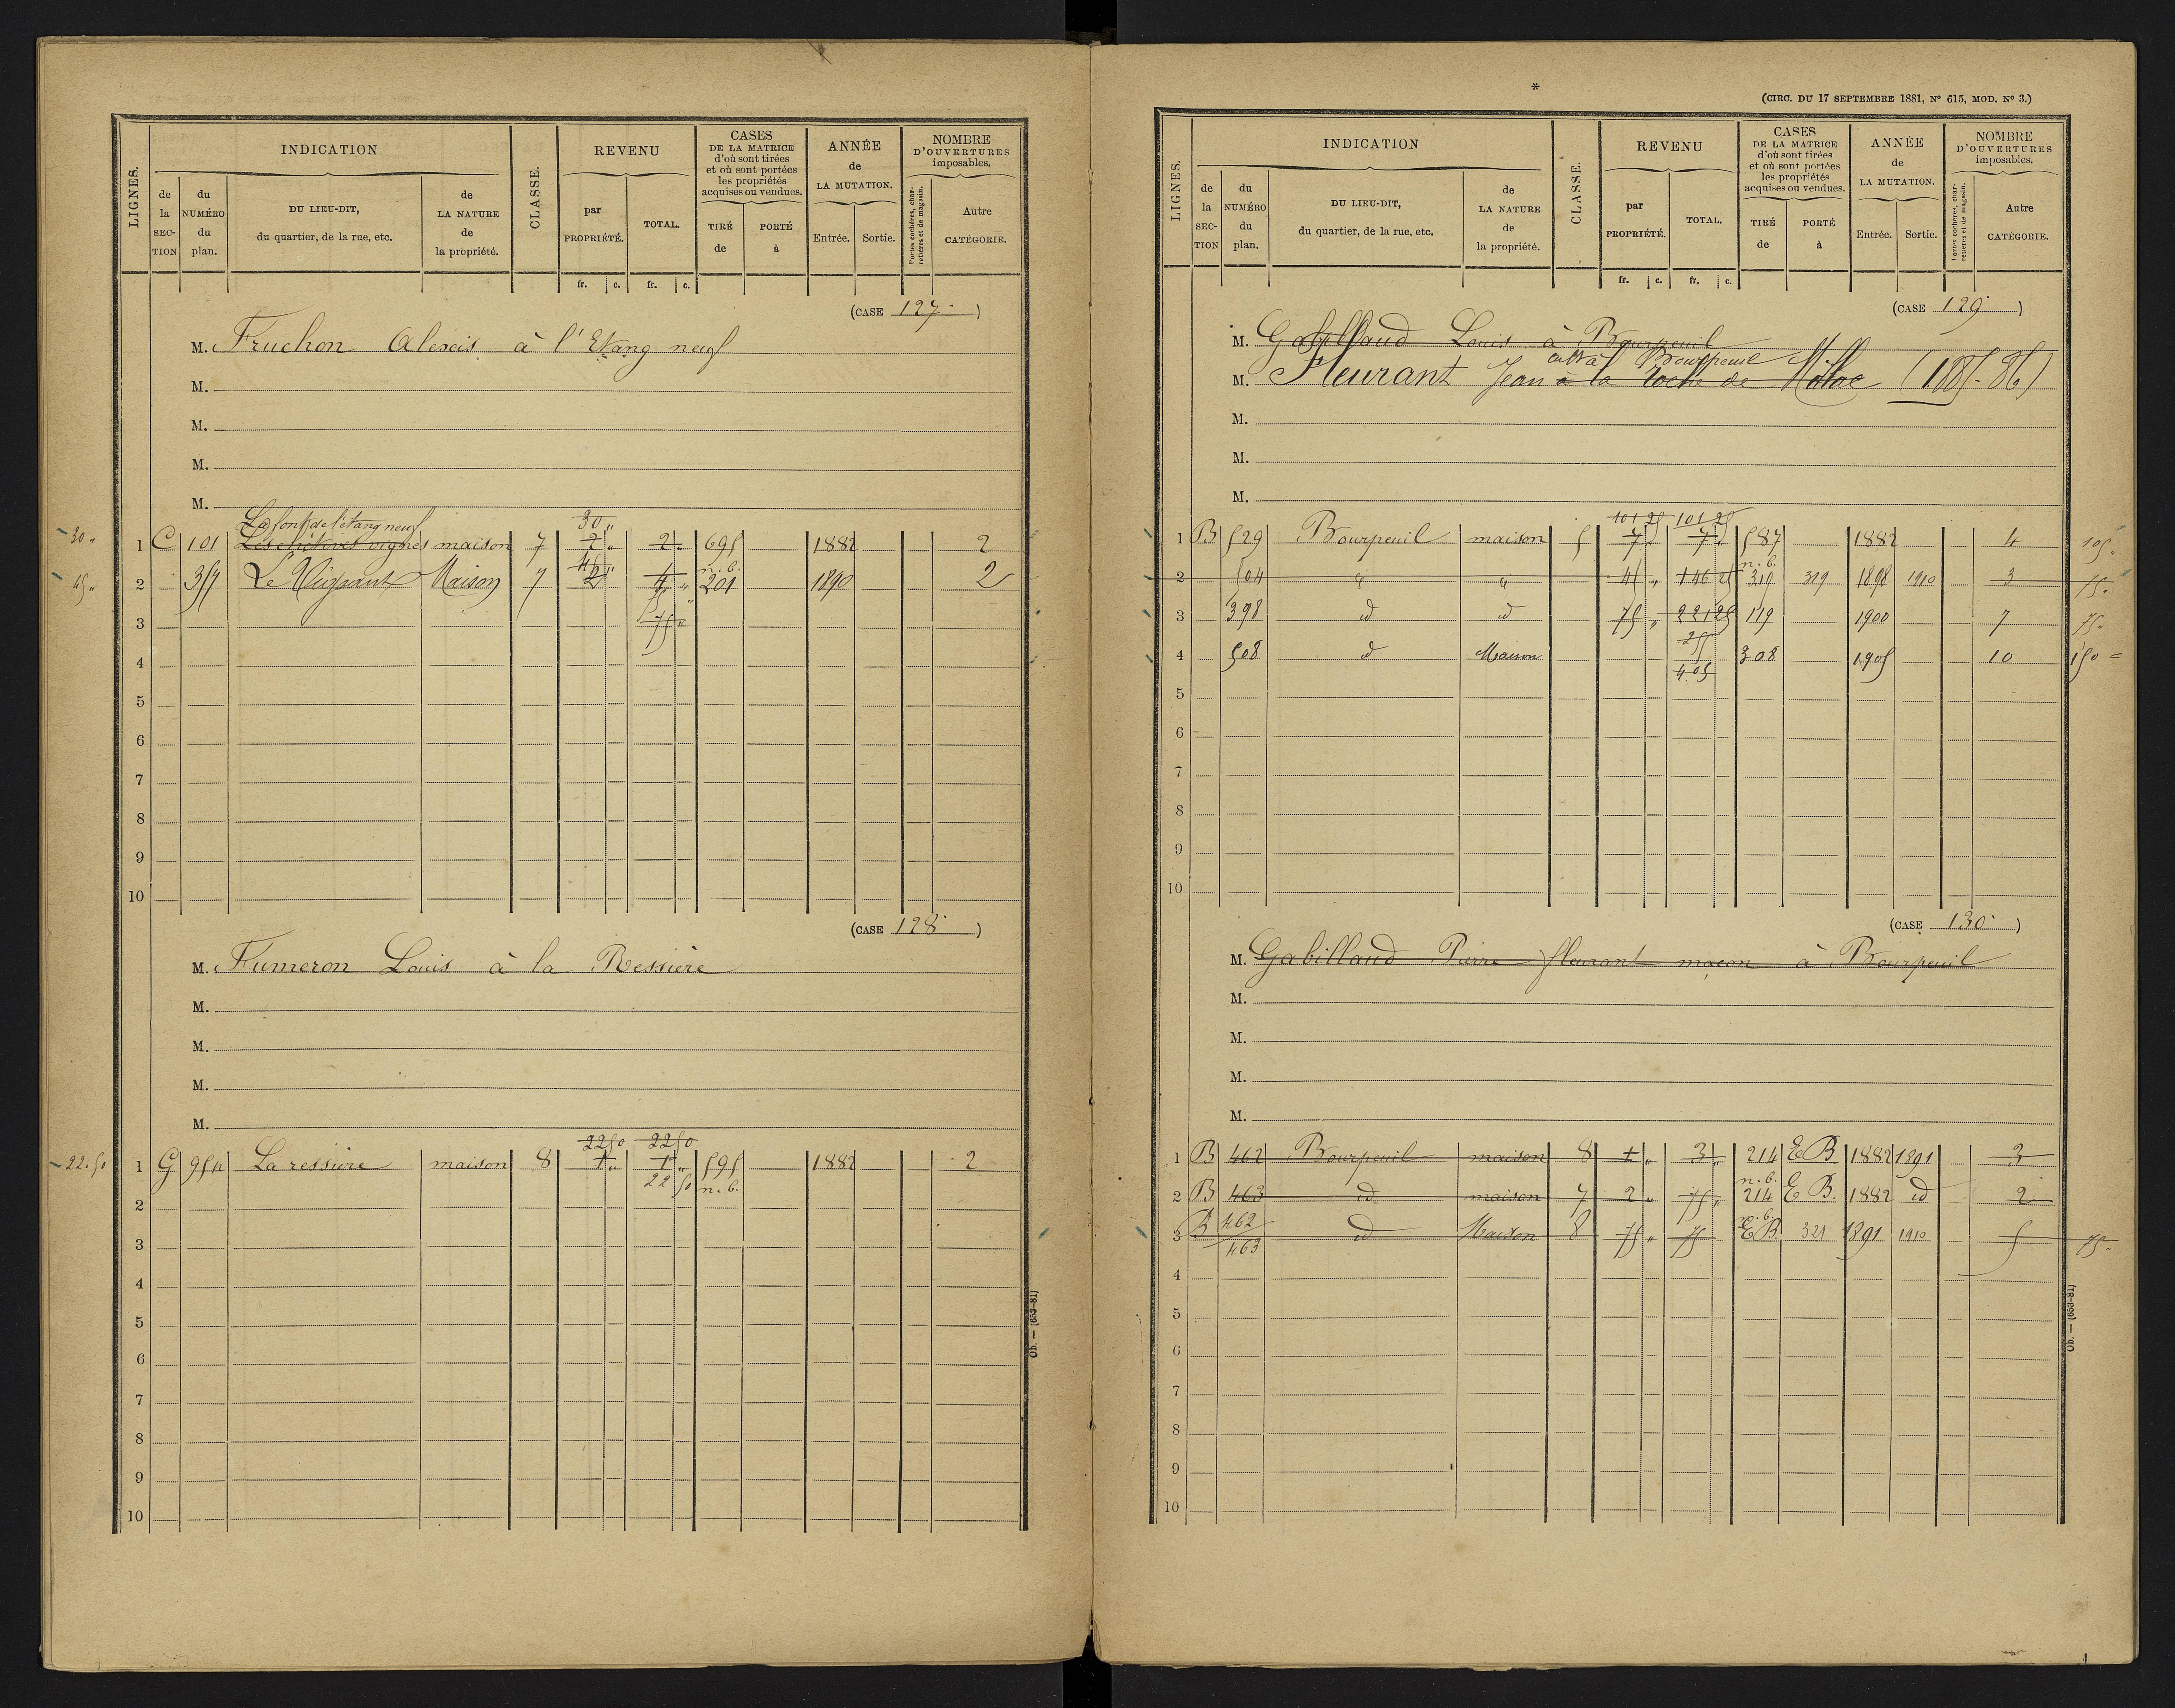 LIGNES.
INDICATION
de la SECTION
du NUMÉRO du plan.
DU LIEU-DIT, du quartier, de la rue, etc.
de LA NATURE de la propriété.
CLASSE.
REVENU
par PROPRIÉTÉ.
TOTAL.
fr. c. fr. c.
CASES DE LA MATRICE d'où sont tirées et où sont portées les propriétés acquises ou vendues.
TIRÉ de
PORTÉ à
ANNÉE de LA MUTATION.
Entrée. Sortie.
NOMBRE D'OUVERTURES imposables.
Portes cochères, charretières et de magasin.
Autre CATÉGORIE.
(CASE 127)
M. Fruchon Alexis à l'Etang neuf
M.
M.
M.
M.
La font de l'étang neuf 30 „
30 „ 1 C 101 maison 7 2 „ 2 „ 695 1882 2
45 „ n. b.
45 „ 2 357 Le Vignaut Maison 7 2 4 „ 201 1890 2
3 75 „
4
5
6
7
8
9
10
(CASE 128)
M. Fumeron Louis à la Ressière
M.
M.
M.
M.
22 50 22 50
22.50 1 G 954 La ressière maison 8 1 „ 1 „ 595 1882 2
22 50 n. b.
2
3
4
5
6
7
8
9
10
Ob. — (653-81)
*
(CIRC. DU 17 SEPTEMBRE 1881, N° 615, MOD. N° 3.)
LIGNES.
INDICATION
de la SECTION
du NUMÉRO du plan.
DU LIEU-DIT, du quartier, de la rue, etc.
de LA NATURE de la propriété.
CLASSE.
REVENU
par PROPRIÉTÉ.
TOTAL.
fr. c. fr. c.
CASES DE LA MATRICE d'où sont tirées et où sont portées les propriétés acquises ou vendues.
TIRÉ de
PORTÉ à
ANNÉE de LA MUTATION.
Entrée. Sortie.
NOMBRE D'OUVERTURES imposables.
Portes cochères, charretières et de magasin.
Autre CATÉGORIE.
(CASE 129)
M. Gabillaud Louis à Bourpeuil
à Bourpeuil
M. Fleurant Jean à la roche de Millac (1885-86)
M.
M.
M.
101 25 101 25
1 B 529 Bourpeuil maison 5 7 „ 7 „ 587 1882 4 105 „
n. b.
2 504 „ „ 45 „ 146 25 319 319 1898 1910 3 75 „
3 398 id id 75 „ 221 25 119 1900 7 75 „
255
4 508 id Maison 308 1905 10 150 =
405
5
6
7
8
9
10
(CASE 130)
M. Gabillaud Pierre fleurant maçon à Bourpeuil
M.
M.
M.
M.
1 B 462 Bourpeuil maison 8 1 „ 3 „ 214 E B 1882 1891 3
n. b.
2 B 463 id maison 7 2 „ 75 „ 214 E B. 1882 id 2
n. b.
3 B 462 463 id Maison 8 75 „ 75 E B. 321 1891 1910 5 75 „
4
5
6
7
8
9
10
Ob. — (653-81)